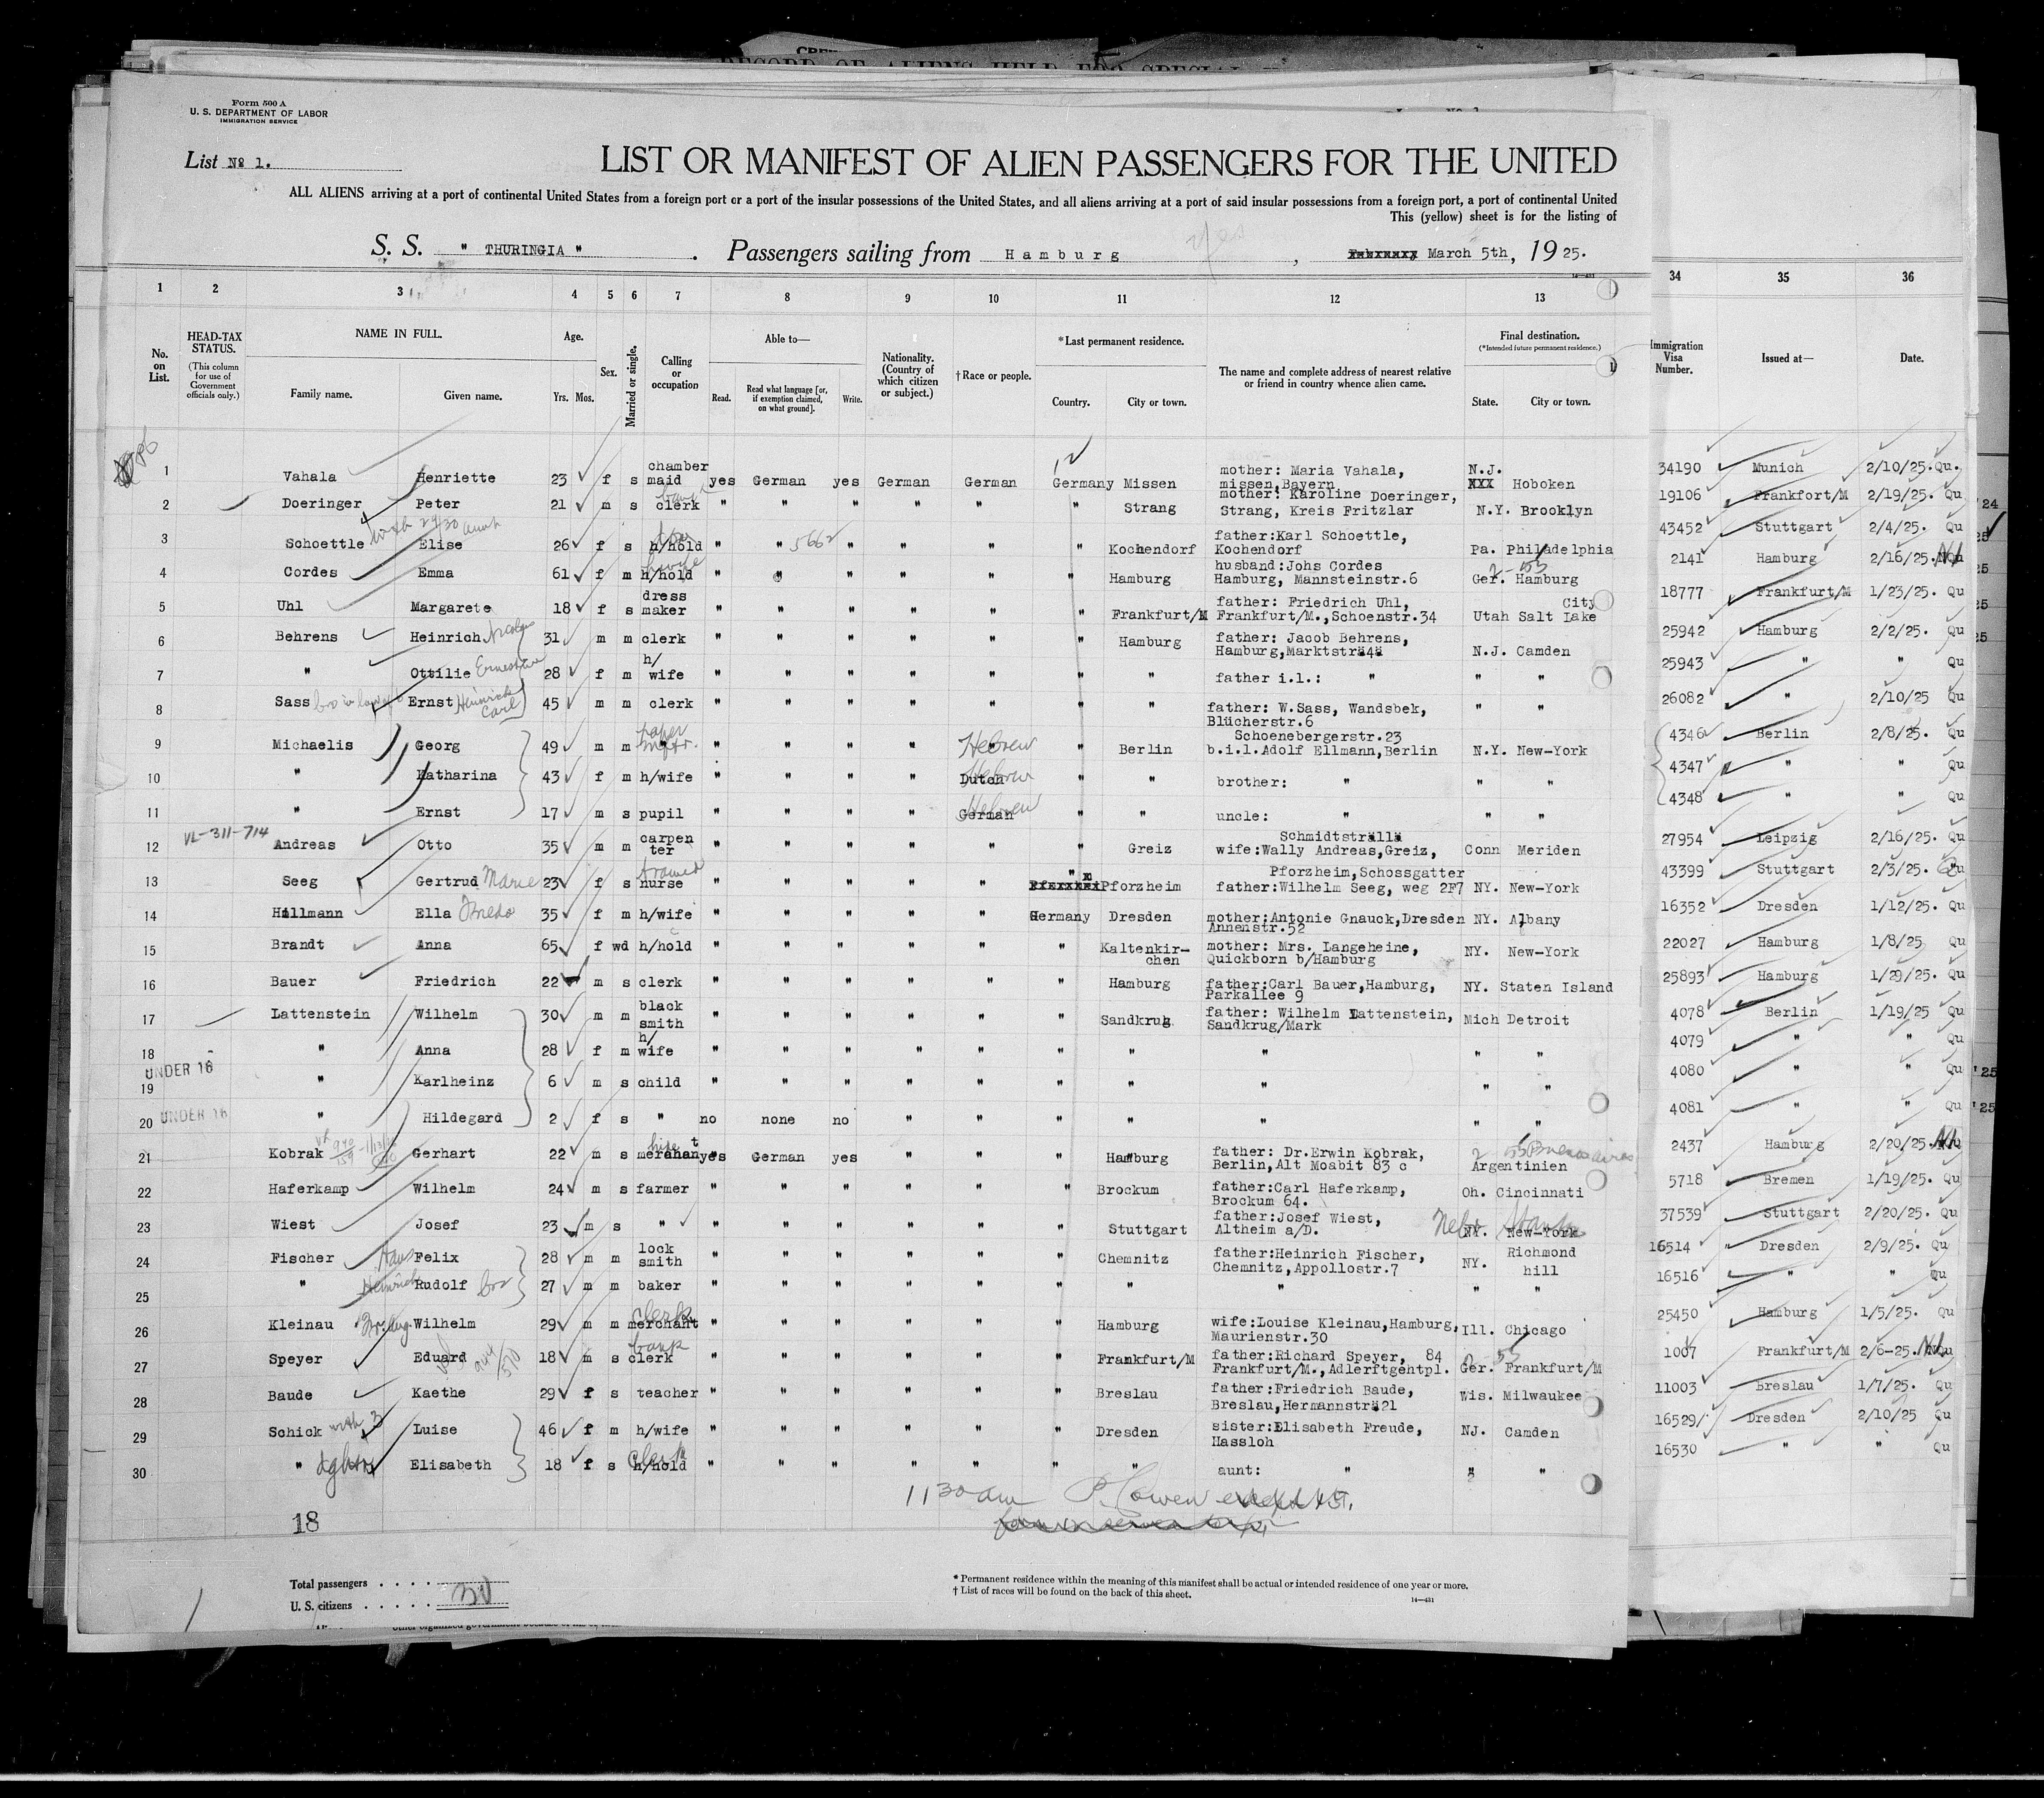 RECORD OF ALIENS HELD FOR SPECIAL
Form 500 A
U. S. DEPARTMENT OF LABOR
IMMIGRATION SERVICE
List No 1.
LIST OR MANIFEST OF ALIEN PASSENGERS FOR THE UNITED
ALL ALIENS arriving at a port of continental United States from a foreign port or a port of the insular possessions of the United States, and all aliens arriving at a port of said insular possessions from a foreign port, a port of continental United
This (yellow) sheet is for the listing of
S. S. " THURINGIA " . Passengers sailing from Hamburg , March 5th, 1925.
1 2 3 4 5 6 7 8 9 10 11 12 13 34 35 36
No. on List. HEAD-TAX STATUS. (This column for use of Government officials only.) NAME IN FULL. Family name. Given name. Age. Yrs. Mos. Sex. Married or single. Calling or occupation Able to— Read. Read what language [or, if exemption claimed, on what ground]. Write. Nationality. (Country of which citizen or subject.) †Race or people. *Last permanent residence. Country. City or town. The name and complete address of nearest relative or friend in country whence alien came. Final destination. (*Intended future permanent residence.) State. City or town. Immigration Visa Number. Issued at— Date.
1 Vahala Henriette 23 f s chamber maid yes German yes German German Germany Missen mother: Maria Vahala, missen,Bayern N.J. XXX Hoboken 34190 Munich 2/10/25. Qu.
2 Doeringer Peter 21 m s clerk " " " " " " Strang mother: Karoline Doeringer, Strang, Kreis Fritzlar N.Y. Brooklyn 19106 Frankfort/M 2/19/25. Qu
3 Schoettle Elise 26 f s h/hold " " 5662 " " " " Kochendorf father:Karl Schoettle, Kochendorf Pa. Philadelphia 43452 Stuttgart 2/4/25. Qu
4 Cordes Emma 61 f m h/hold " " " " " " Hamburg husband:Johs Cordes Hamburg, Mannsteinstr.6 Ger. Hamburg 2141 Hamburg 2/16/25.
5 Uhl Margarete 18 f s dress maker " " " " " " Frankfurt/M father: Friedrich Uhl, Frankfurt/M.,Schoenstr.34 Utah Salt Lake City 18777 Frankfurt/M 1/23/25. Qu
6 Behrens Heinrich 31 m m clerk " " " " " " Hamburg father: Jacob Behrens, Hamburg,Marktsträ4ä N.J. Camden 25942 Hamburg 2/2/25. Qu
7 " Ottilie Ernestine 28 f m h/ wife " " " " " " " father i.l.: " " " 25943 " " Qu
8 Sass bro in law Ernst Heinrich Carl 45 m m clerk " " " " " " " father: W.Sass, Wandsbek, Blücherstr.6 " " 26082 " 2/10/25 Qu
9 Michaelis Georg 49 m m paper mftr. " " " " Hebrew " Berlin Schoenebergerstr.23 b.i.l.Adolf Ellmann,Berlin N.Y. New-York 4346 Berlin 2/8/25. Qu
10 " Katharina 43 f m h/wife " " " " Dutch Hebrew " " brother: " " " 4347 " " Qu
11 " Ernst 17 m s pupil " " " " German Hebrew " " uncle: " " " 4348 " " Qu
VL-311-714
12 Andreas Otto 35 m m carpen ter " " " " " " Greiz Schmidtsträllä wife:Wally Andreas,Greiz, Conn Meriden 27954 Leipzig 2/16/25. Qu
13 Seeg Gertrud Marie 23 f s nurse " " " " " " Pforzheim Pforzheim,Schossgatter father:Wilhelm Seeg, weg 2F7 NY. New-York 43399 Stuttgart 2/3/25. Qu
14 Hillmann Ella 35 f m h/wife " " " " " Germany Dresden mother:Antonie Gnauck,Dresden Annenstr.52 NY. Albany 16352 Dresden 1/12/25. Qu
15 Brandt Anna 65 f wd h/hold " " " " " " Kaltenkir- chen mother: Mrs. Langeheine, Quickborn b/Hamburg NY. New-York 22027 Hamburg 1/8/25 Qu
16 Bauer Friedrich 22 m s clerk " " " " " " Hamburg father:Carl Bauer,Hamburg, Parkallee 9 NY. Staten Island 25893 Hamburg 1/29/25. Qu
17 Lattenstein Wilhelm 30 m m black smith " " " " " " Sandkrug father: Wilhelm Lattenstein, Sandkrug/Mark Mich Detroit 4078 Berlin 1/19/25 Qu
18 " Anna 28 f m h/ wife " " " " " " " " " " 4079 " " Qu
UNDER 16
19 " Karlheinz 6 m s child " " " " " " " " " " 4080 " " Qu
20 UNDER 16 " Hildegard 2 f s " no none no " " " " " " " 4081 " " Qu
21 Kobrak Gerhart 22 m s merchant yes German yes " " " Hamburg father: Dr.Erwin Kobrak, Berlin,Alt Moabit 83 c Argentinien Buenos Aires 2437 Hamburg 2/20/25.
22 Haferkamp Wilhelm 24 m s farmer " " " " " " Brockum father:Carl Haferkamp, Brockum 64. Oh. Cincinnati 5718 Bremen 1/19/25. Qu
23 Wiest Josef 23 m s " " " " " " " Stuttgart father:Josef Wiest, Altheim a/D. Nebr NY. New-York 37539 Stuttgart 2/20/25. Qu
24 Fischer Hans Felix 28 m m lock smith " " " " " " Chemnitz father:Heinrich Fischer, Chemnitz,Appollostr.7 NY. Richmond hill 16514 Dresden 2/9/25. Qu
25 " Heinrich Rudolf bro 27 m m baker " " " " " " " " " " 16516 " " Qu
26 Kleinau Wilhelm 29 m m merchant clerk " " " " " " Hamburg wife:Louise Kleinau,Hamburg, Maurienstr.30 Ill. Chicago 25450 Hamburg 1/5/25. Qu
27 Speyer Eduard 18 m s bank clerk " " " " " " Frankfurt/M father:Richard Speyer, 84 Frankfurt/M.,Adlerftgentpl. Ger. Frankfurt/M 1007 Frankfurt/M 2/6-25.
28 Baude Kaethe 29 f s teacher " " " " " " Breslau father:Friedrich Baude, Breslau,Hermannsträ21 Wis. Milwaukee 11003 Breslau 1/7/25. Qu
29 Schick with 3 Luise 46 f m h/wife " " " " " " Dresden sister:Elisabeth Freude, Hassloh NJ. Camden 16529 Dresden 2/10/25 Qu
30 " dghtr Elisabeth 18 f s h/hold clerk " " " " " " " aunt: " " " 16530 " " Qu
11 30 am P. Cowen
18
Total passengers . . . . 30
U. S. citizens . . . . .
* Permanent residence within the meaning of this manifest shall be actual or intended residence of one year or more.
† List of races will be found on the back of this sheet.
14—431